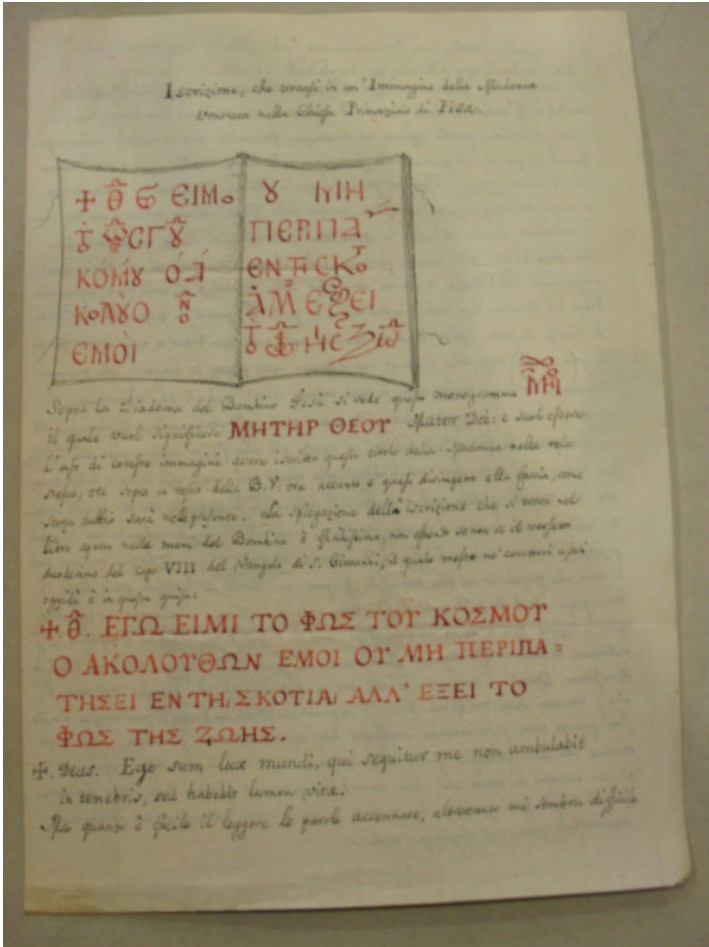 Iscrizione, che trovasi in un' Immagine della Madonna
venerata nella Chiesa Primaziale di Pisa.
✠ Θ̑ ЄΙΜο
ΚΟΜȢ
ΚοΛȢΟ
ЄΜΟΙ
Ȣ ΜΗ
ΠЄΡΙΠΑ
ЄΝ
Sopra la Diadema del Bambino Gesù si vede questo monogramma
il quale vuol significare ΜΗΤΗΡ ΘΕΟΥ Mater Dei: e suol essere
L'uso di coteste immagini avere iscritto questo titolo della Madonna nella tela
stessa, ora sopra la testa della B.V. ora accanto e quasi dirimpetto alla faccia, come
senza dubbio sarà nella presente. La spiegazione della iscrizione che si trova nel
libro aperto nelle mani del Bambino è facilissima, non essendo se non se il verso
duodecimo del capo VIII del Vangelo di S. Giovanni, il quale messo ne' caratteri usati
oggidì è in questa guisa:
✠ Θ̑. ΕΓΩ ΕΙΜΙ ΤΟ ΦΩΣ ΤΟΥ ΚΟΣΜΟΥ
Ο ΑΚΟΛΟΥΘΩΝ ΕΜΟΙ ΟΥ ΜΗ ΠΕΡΙΠΑ=
ΤΗΣΕΙ ΕΝ ΤΗ, ΣΚΟΤΙΑ, ΑΛΛ' ΕΞΕΙ ΤΟ
ΦΩΣ ΤΗΣ ΖΩΗΣ.
✠. Deus. Ego sum lux mundi, qui sequitur me non ambulabit
in tenebris, sed habebit lumen vitæ.
Ma quanto è facile il leggere le parole accennate, altrettanto mi sembra difficile